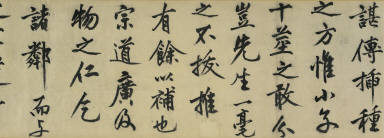 諶傳插種
之方惟小子
十莖之敢
豈先生一毫
之不拔推
有餘以補也
宗道廣及
物之仁乞
諸鄰而子